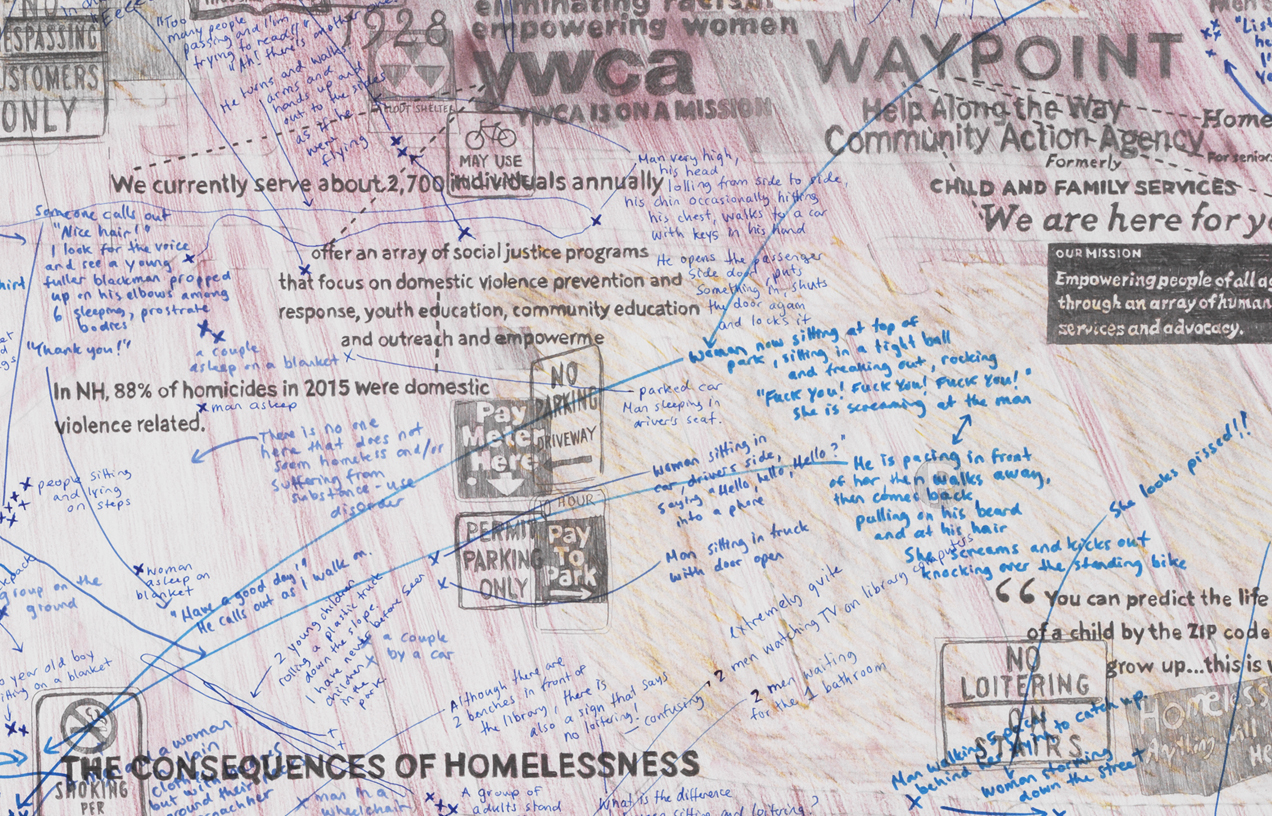 NO
TRESPASSING
CUSTOMERS
ONLY
"Too
many people
passing and I'm
trying to read!"
"Ah! there's another one
He turns and walks
arms and
hands up and
out to the sides
as if he
were
flying
1928
FALLOUT SHELTER
eliminating racism
empowering women
ywca
YWCA IS ON A MISSION
MAY USE
WAYPOINT
Help Along the Way
Community Action Agency
Formerly
Home
For seniors
CHILD AND FAMILY SERVICES
We are here for yo
OUR MISSION
Empowering people of all ag
through an array of human
services and advocacy.
We currently serve about 2,700 individuals annually
Man very high,
his head
lolling from side to side,
his chin occasionally hitting
his chest, walks to a car
with keys in his hand
He opens the passenger
side door, puts
something in, shuts
the door again
and locks it
Someone calls out
"Nice hair!"
I look for the voice
and see a young
fuller blackman propped
up on his elbows among
6 sleeping, prostrate
bodies
"Thank you!"
offer an array of social justice programs
that focus on domestic violence prevention and
response, youth education, community education
and outreach and empowerme
a couple
asleep on a blanket
In NH, 88% of homicides in 2015 were domestic
violence related.
man asleep
There is no one
here that does not
seem homeless and/or
suffering from
substance-use
disorder
NO
PARKING
DRIVEWAY
Pay
Meter
Here
HOUR
PERMIT
PARKING
ONLY
Pay
To
Park
parked car
Man sleeping in
driver's seat.
Woman now sitting at top of
park, sitting in a tight ball
and freaking out, rocking
"Fuck You! Fuck You! Fuck You!"
She is screaming at the man
Woman sitting in
car, driver's side,
saying "Hello, hello, Hello?"
into a phone
Man sitting in truck
with door open
He is pacing in front
of her then walks away,
then comes back,
pulling on his beard
and at his hair
She screams and kicks out
knocking over the standing bike
She looks pissed!!
people sitting
and lying
on steps
group on the
ground
woman
asleep on
blanket
"Have a good day!"
He calls out as I walk on.
2 young children
rolling a plastic truck
down the slope.
I have never before seen
children in the
park.
a couple
by a car
year old boy
sitting on a blanket
Although there are
2 benches in front of
the library, there is
also a sign that says
no loitering! - confusing
extremely quite
2 men watching TV on library computers
2 men waiting
for the 1 bathroom
“ You can predict the life
of a child by the ZIP code
grow up...this is
NO
LOITERING
ON
STAIRS
Homeless
Anything will
He
Man walking 5 paces
behind her trying to catch up.
Woman storming
down the street
SMOKING
PER
THE CONSEQUENCES OF HOMELESSNESS
a woman
but with
around their
man in a
wheelchair
A group of
adults stand
What is the difference
between sitting and loitering?